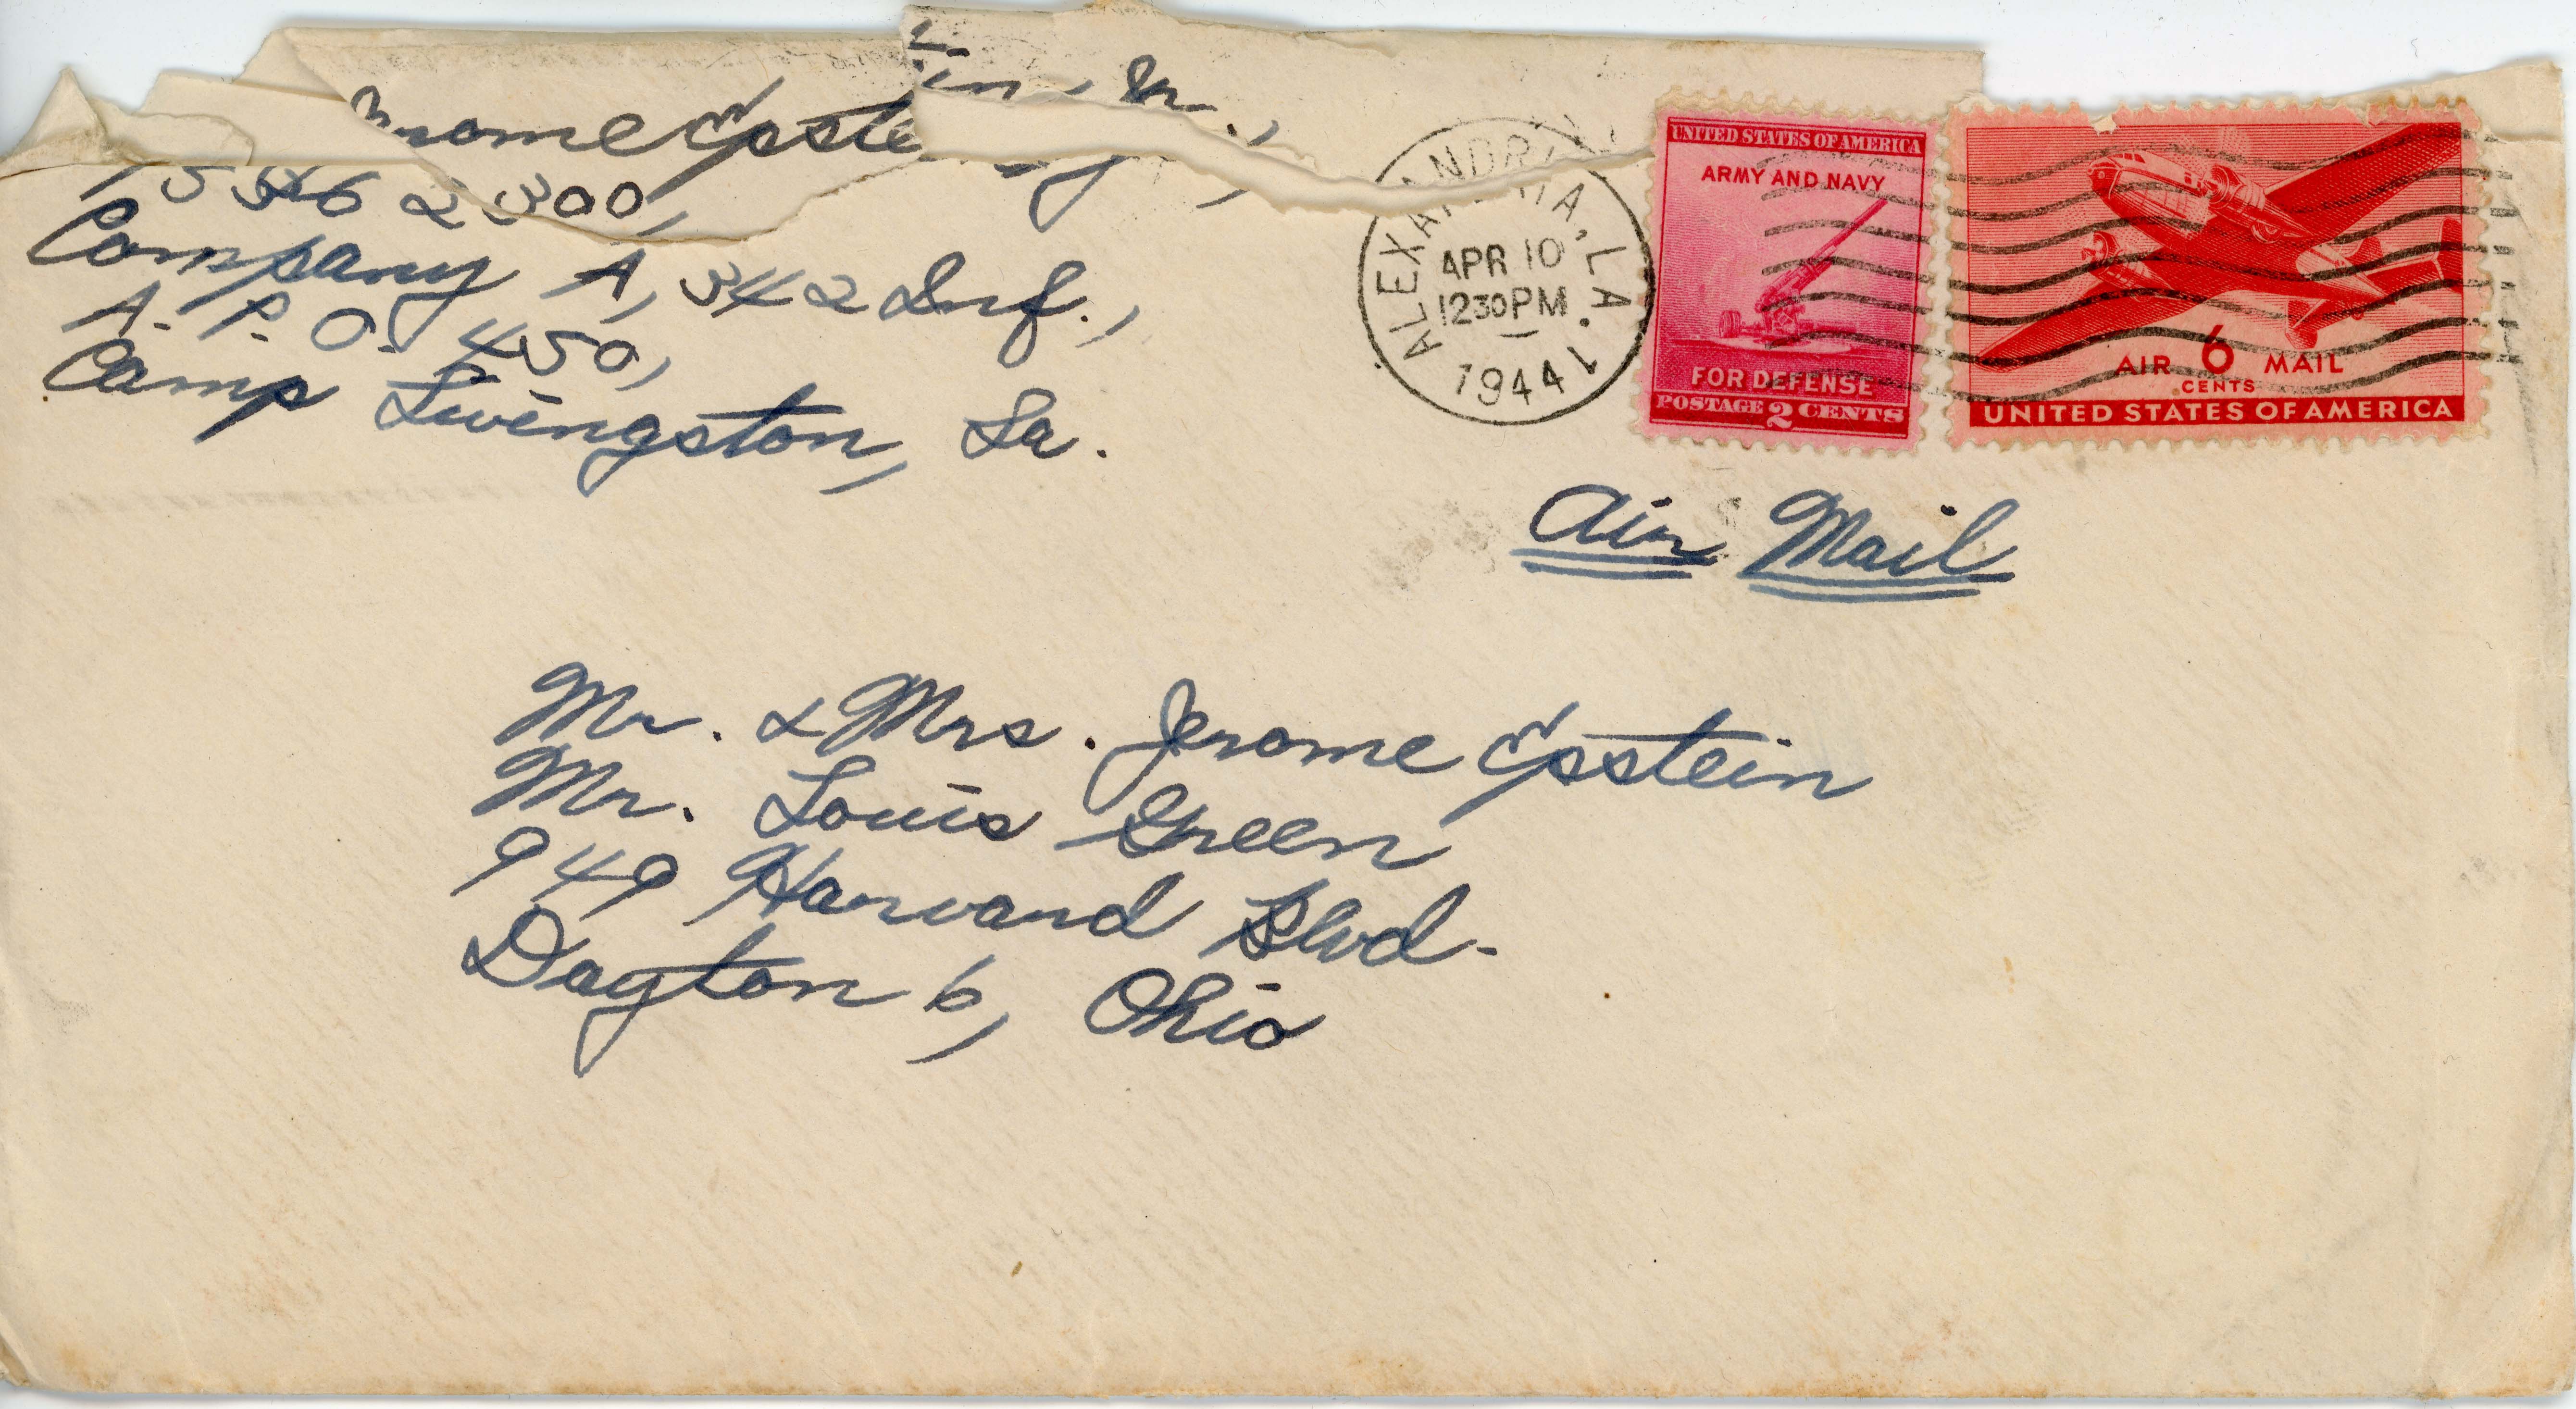 Jerome Epstein, Jr.,
15346 2300,
Company A, 342 Inf.,
A. P. O. 450,
Camp Livingston, La.
ALEXANDRIA, LA.
APR 10
1230 PM
1944
UNITED STATES OF AMERICA
ARMY AND NAVY
FOR DEFENSE
POSTAGE 2 CENTS
AIR 6 MAIL
CENTS
UNITED STATES OF AMERICA
Air Mail
Mr. & Mrs. Jerome Epstein
Mr. Louis Green
949 Harvard Blvd.
Dayton 6, Ohio